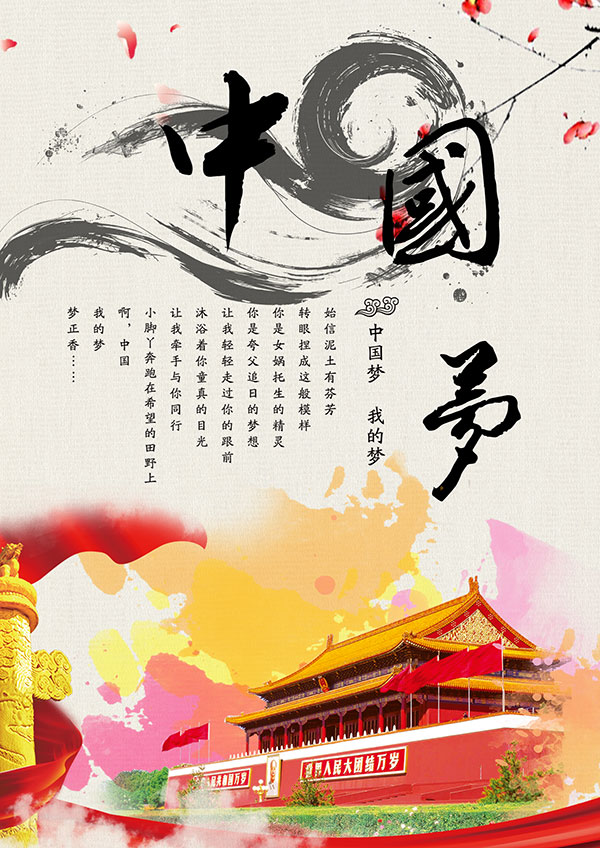 中國
夢
中国梦 我的梦
始信泥土有芬芳
转眼捏成这般模样
你是女娲托生的精灵
你是夸父追日的梦想
让我轻轻走过你的跟前
沐浴着你童真的目光
让我牵手与你同行
小脚丫奔跑在希望的田野上
啊，中国
我的梦
梦正香……
人民共和国万岁
世界人民大团结万岁